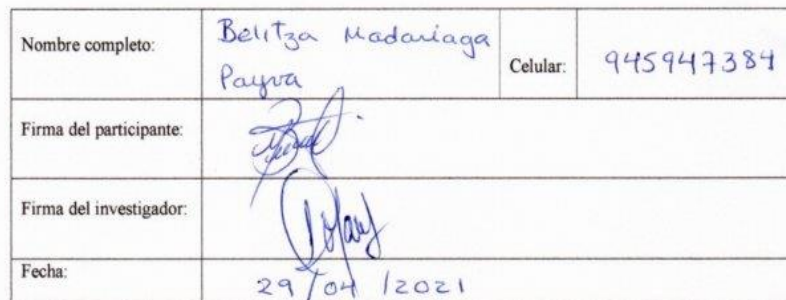 Nombre completo: Belitza Madariaga
Payva
Celular: 945947384
Firma del participante:
Firma del investigador:
Fecha: 29/04/2021